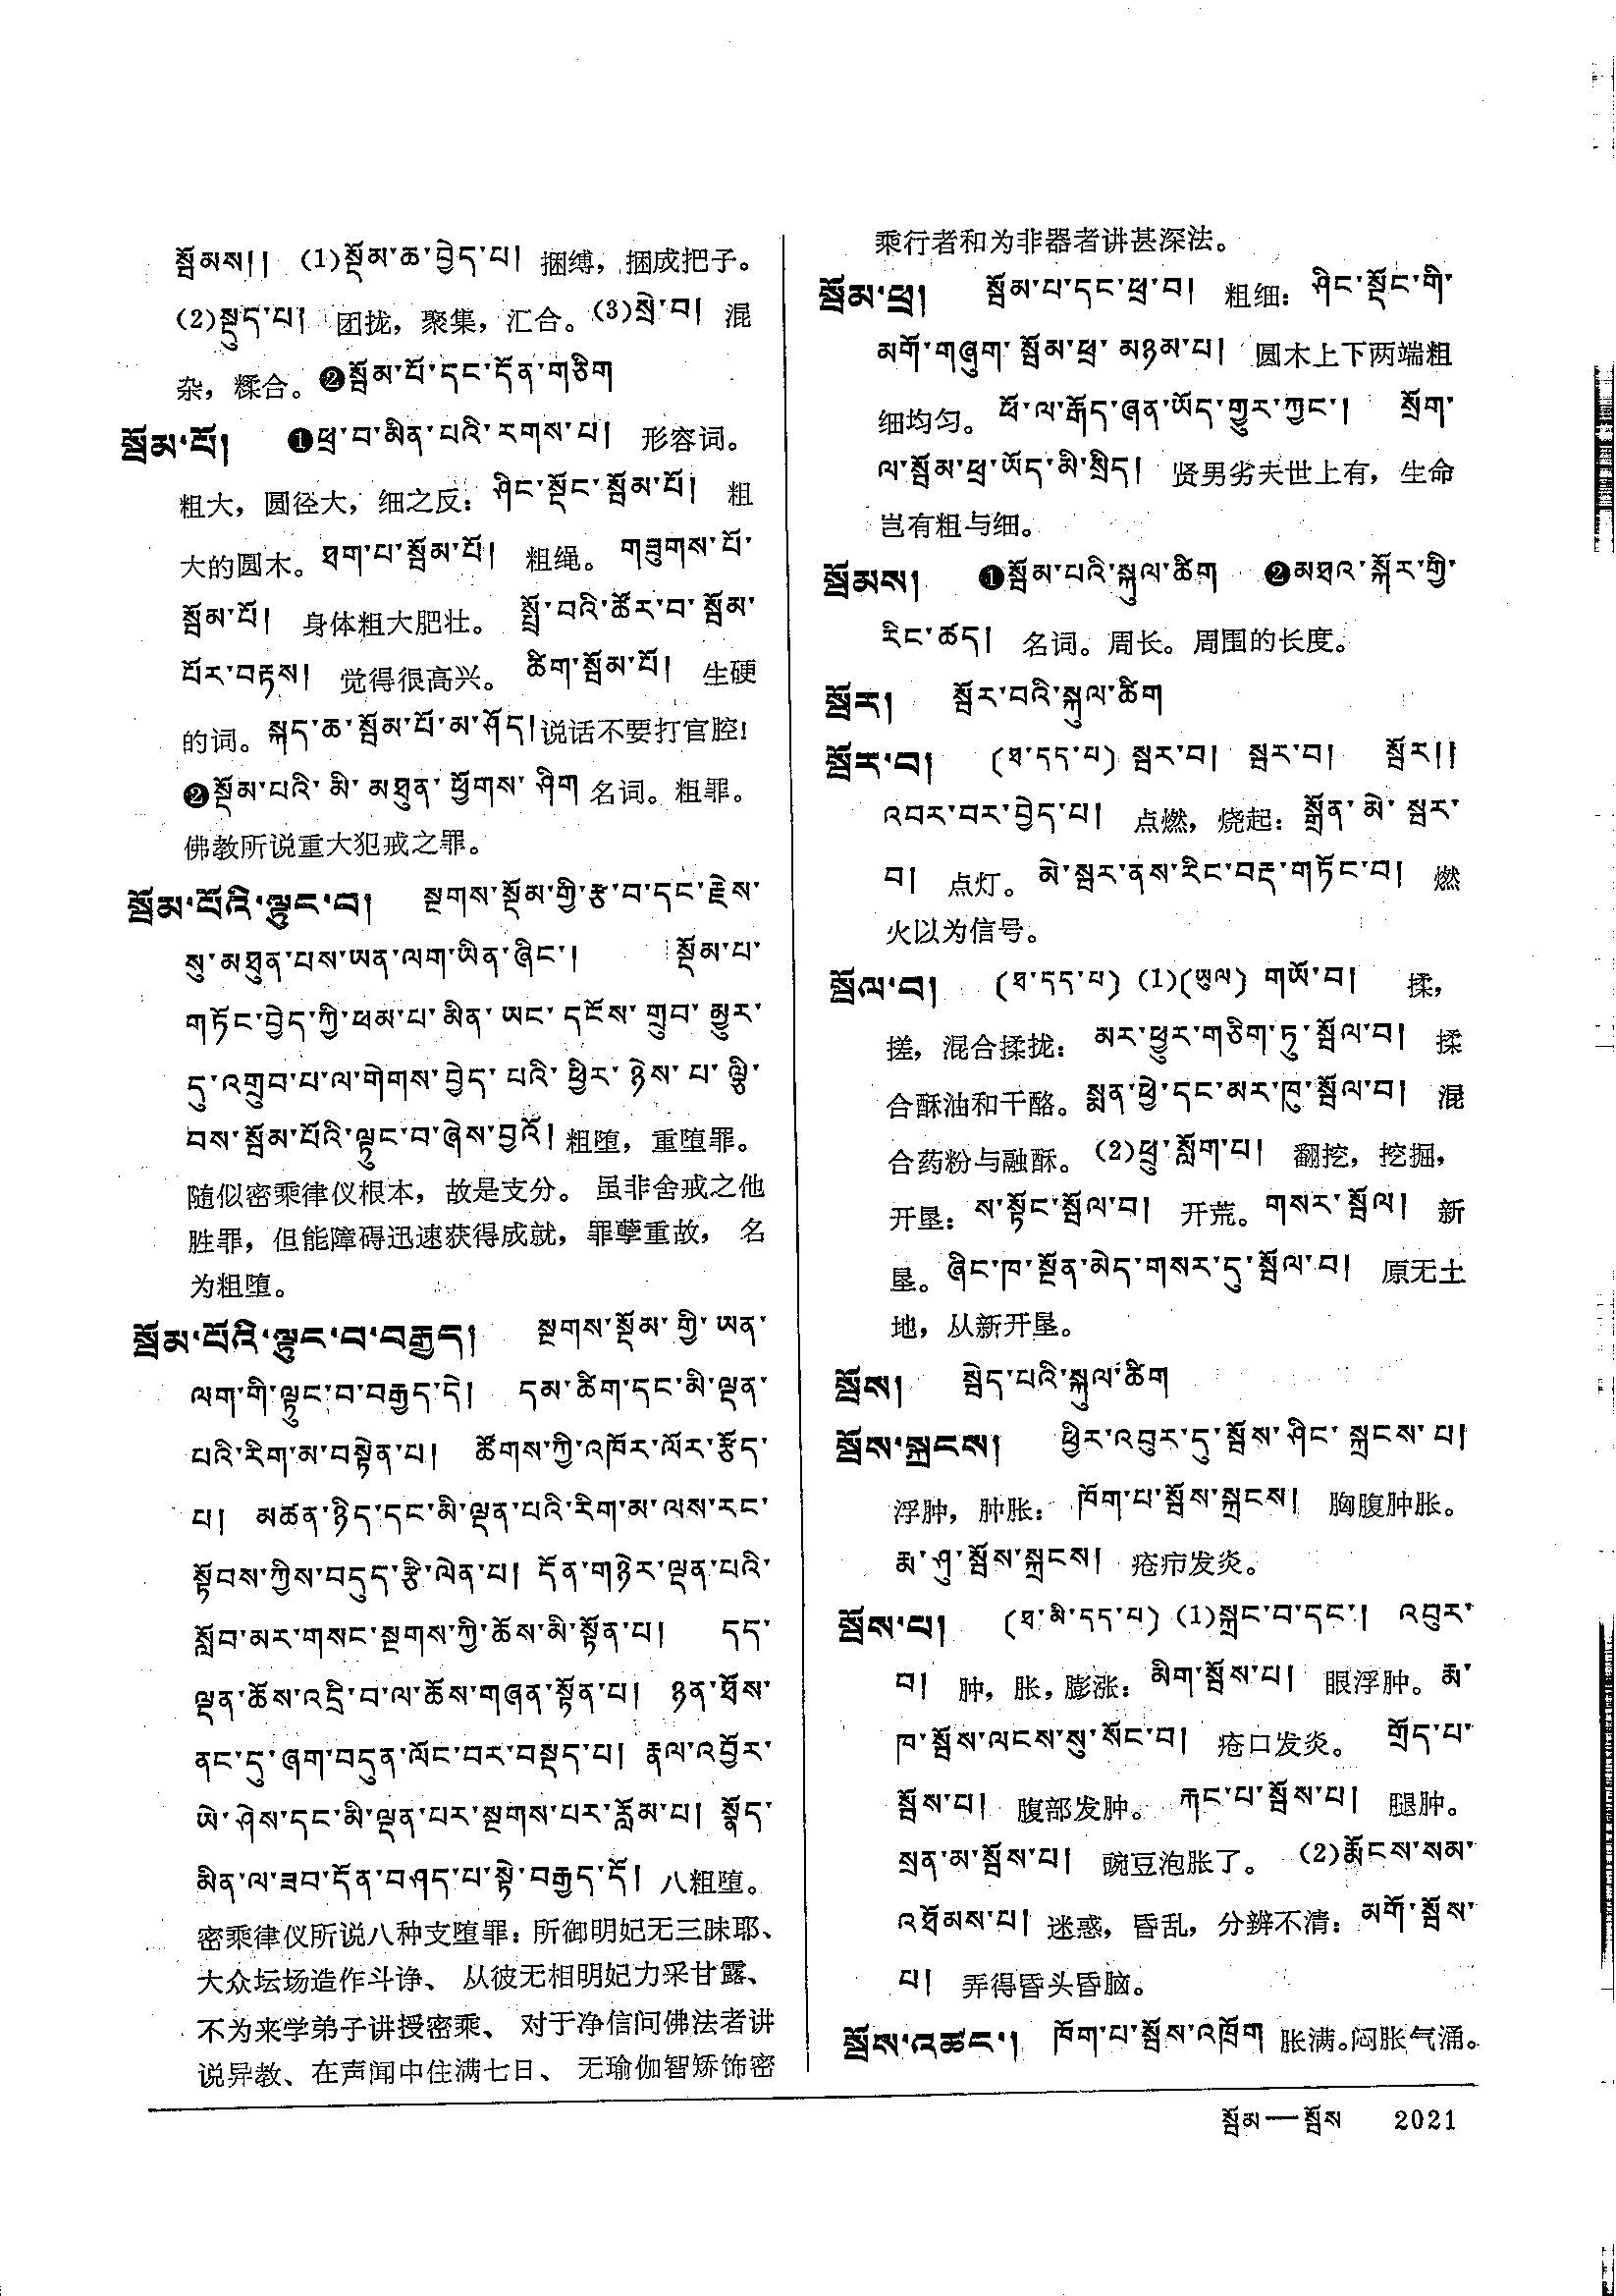 སྦོམས།། (1)སྡོམ་ཆ་བྱེད་པ། 捆缚，捆成把子。
(2)སྡུད་པ། 团拢，聚集，汇合。(3)སྲེ་བ། 混
杂，糅合。❷སྦོམ་པོ་དང་དོན་གཅིག
སྦོམ་པོ། ❶ཕྲ་བ་མིན་པའི་རགས་པ། 形容词。
粗大，圆径大，细之反：ཤིང་སྡོང་སྦོམ་པོ། 粗
大的圆木。ཐག་པ་སྦོམ་པོ། 粗绳。གཟུགས་པོ་
སྦོམ་པོ། 身体粗大肥壮。སྤྲོ་བའི་ཚོར་བ་སྦོམ་
པོར་བརྟས། 觉得很高兴。ཚིག་སྦོམ་པོ། 生硬
的词。སྐད་ཆ་སྦོམ་པོ་མ་ཤོད། 说话不要打官腔!
❷སྡོམ་པའི་མི་མཐུན་ཕྱོགས་ཤིག 名词。粗罪。
佛教所说重大犯戒之罪。
སྦོམ་པོའི་ལྟུང་བ། སྔགས་སྡོམ་གྱི་རྩ་བ་དང་རྗེས་
སུ་མཐུན་པས་ཡན་ལག་ཡིན་ཞིང་། སྡོམ་པ་
གཏོང་བྱེད་ཀྱི་ཕམ་པ་མིན་ཡང་དངོས་གྲུབ་མྱུར་
དུ་འགྲུབ་པ་ལ་གེགས་བྱེད་པའི་ཕྱིར་ཉེས་པ་ལྕི་
བས་སྦོམ་པོའི་ལྟུང་བ་ཞེས་བྱའོ། 粗堕，重堕罪。
随似密乘律仪根本，故是支分。虽非舍戒之他
胜罪，但能障碍迅速获得成就，罪孽重故，名
为粗堕。
སྦོམ་པོའི་ལྟུང་བ་བརྒྱད། སྔགས་སྡོམ་གྱི་ཡན་
ལག་གི་ལྟུང་བ་བརྒྱད་དེ། དམ་ཚིག་དང་མི་ལྡན་
པའི་རིག་མ་བསྟེན་པ། ཚོགས་ཀྱི་འཁོར་ལོར་རྩོད་
པ། མཚན་ཉིད་དང་མི་ལྡན་པའི་རིག་མ་ལས་རང་
སྟོབས་ཀྱིས་བདུད་རྩི་ལེན་པ། དོན་གཉེར་ལྡན་པའི་
སློབ་མར་གསང་སྔགས་ཀྱི་ཆོས་མི་སྟོན་པ། དད་
ལྡན་ཆོས་འདྲི་བ་ལ་ཆོས་གཞན་སྟོན་པ། ཉན་ཐོས་
ནང་དུ་ཞག་བདུན་ལོང་བར་བསྡད་པ། རྣལ་འབྱོར་
ཡེ་ཤེས་དང་མི་ལྡན་པར་སྔགས་པར་རློམ་པ། སྣོད་
མིན་ལ་ཟབ་དོན་བཤད་པ་སྟེ་བརྒྱད་དོ། 八粗堕。
密乘律仪所说八种支堕罪：所御明妃无三昧耶、
大众坛场造作斗诤、从彼无相明妃力采甘露、
不为来学弟子讲授密乘、对于净信问佛法者讲
说异教、在声闻中住满七日、无瑜伽智矫饰密
乘行者和为非器者讲甚深法。
སྦོམ་ཕྲ། སྦོམ་པ་དང་ཕྲ་བ། 粗细：ཤིང་སྡོང་གི་
མགོ་གཞུག་སྦོམ་ཕྲ་མཉམ་པ། 圆木上下两端粗
细均匀。ཕོ་ལ་རྒོད་ཞན་ཡོད་གྱུར་ཀྱང་། སྲོག་
ལ་སྦོམ་ཕྲ་ཡོད་མི་སྲིད། 贤男劣夫世上有，生命
岂有粗与细。
སྦོམས། ❶སྦོམ་པའི་སྐུལ་ཚིག ❷མཐའ་སྐོར་གྱི་
རིང་ཚད། 名词。周长。周围的长度。
སྦོར། སྦོར་བའི་སྐུལ་ཚིག
སྦོར་བ། (ཐ་དད་པ) སྦར་བ། སྦར་བ། སྦོར།།
འབར་བར་བྱེད་པ། 点燃，烧起：སྒྲོན་མེ་སྦར་
བ། 点灯。མེ་སྦར་ནས་རིང་བརྡ་གཏོང་བ། 燃
火以为信号。
སྦོལ་བ། (ཐ་དད་པ) (1)(ཡུལ) གཡོ་བ། 揉，
搓，混合揉拢：མར་ཕྱུར་གཅིག་ཏུ་སྦོལ་བ། 揉
合酥油和干酪。སྨན་ཕྱེ་དང་མར་ཁུ་སྦོལ་བ། 混
合药粉与融酥。(2)ཕྲུ་སློག་པ། 翻挖，挖掘，
开垦：ས་སྟོང་སྦོལ་བ། 开荒。གསར་སྦོལ། 新
垦。ཞིང་ཁ་སྔོན་མེད་གསར་དུ་སྦོལ་བ། 原无土
地，从新开垦。
སྦོས། སྦེད་པའི་སྐུལ་ཚིག
སྦོས་སྐྲངས། ཕྱིར་འབུར་དུ་སྦོས་ཤིང་སྐྲངས་པ།
浮肿，肿胀：ཁོག་པ་སྦོས་སྐྲངས། 胸腹肿胀。
རྨ་ཤུ་སྦོས་སྐྲངས། 疮疖发炎。
སྦོས་པ། (ཐ་མི་དད་པ) (1)སྐྲང་བ་དང་། འབུར་
བ། 肿，胀，膨涨：མིག་སྦོས་པ། 眼浮肿。རྨ་
ཁ་སྦོས་ལངས་སུ་སོང་བ། 疮口发炎。གྲོད་པ་
སྦོས་པ། 腹部发肿。རྐང་པ་སྦོས་པ། 腿肿。
སྲན་མ་སྦོས་པ། 豌豆泡胀了。(2)རྨོངས་སམ་
འཐོམས་པ། 迷惑，昏乱，分辨不清：མགོ་སྦོས་
པ། 弄得昏头昏脑。
སྦོས་འཚང་། ཁོག་པ་སྦོས་འཁྲོག 胀满。闷胀气涌。
སྦོམ—སྦོས 2021